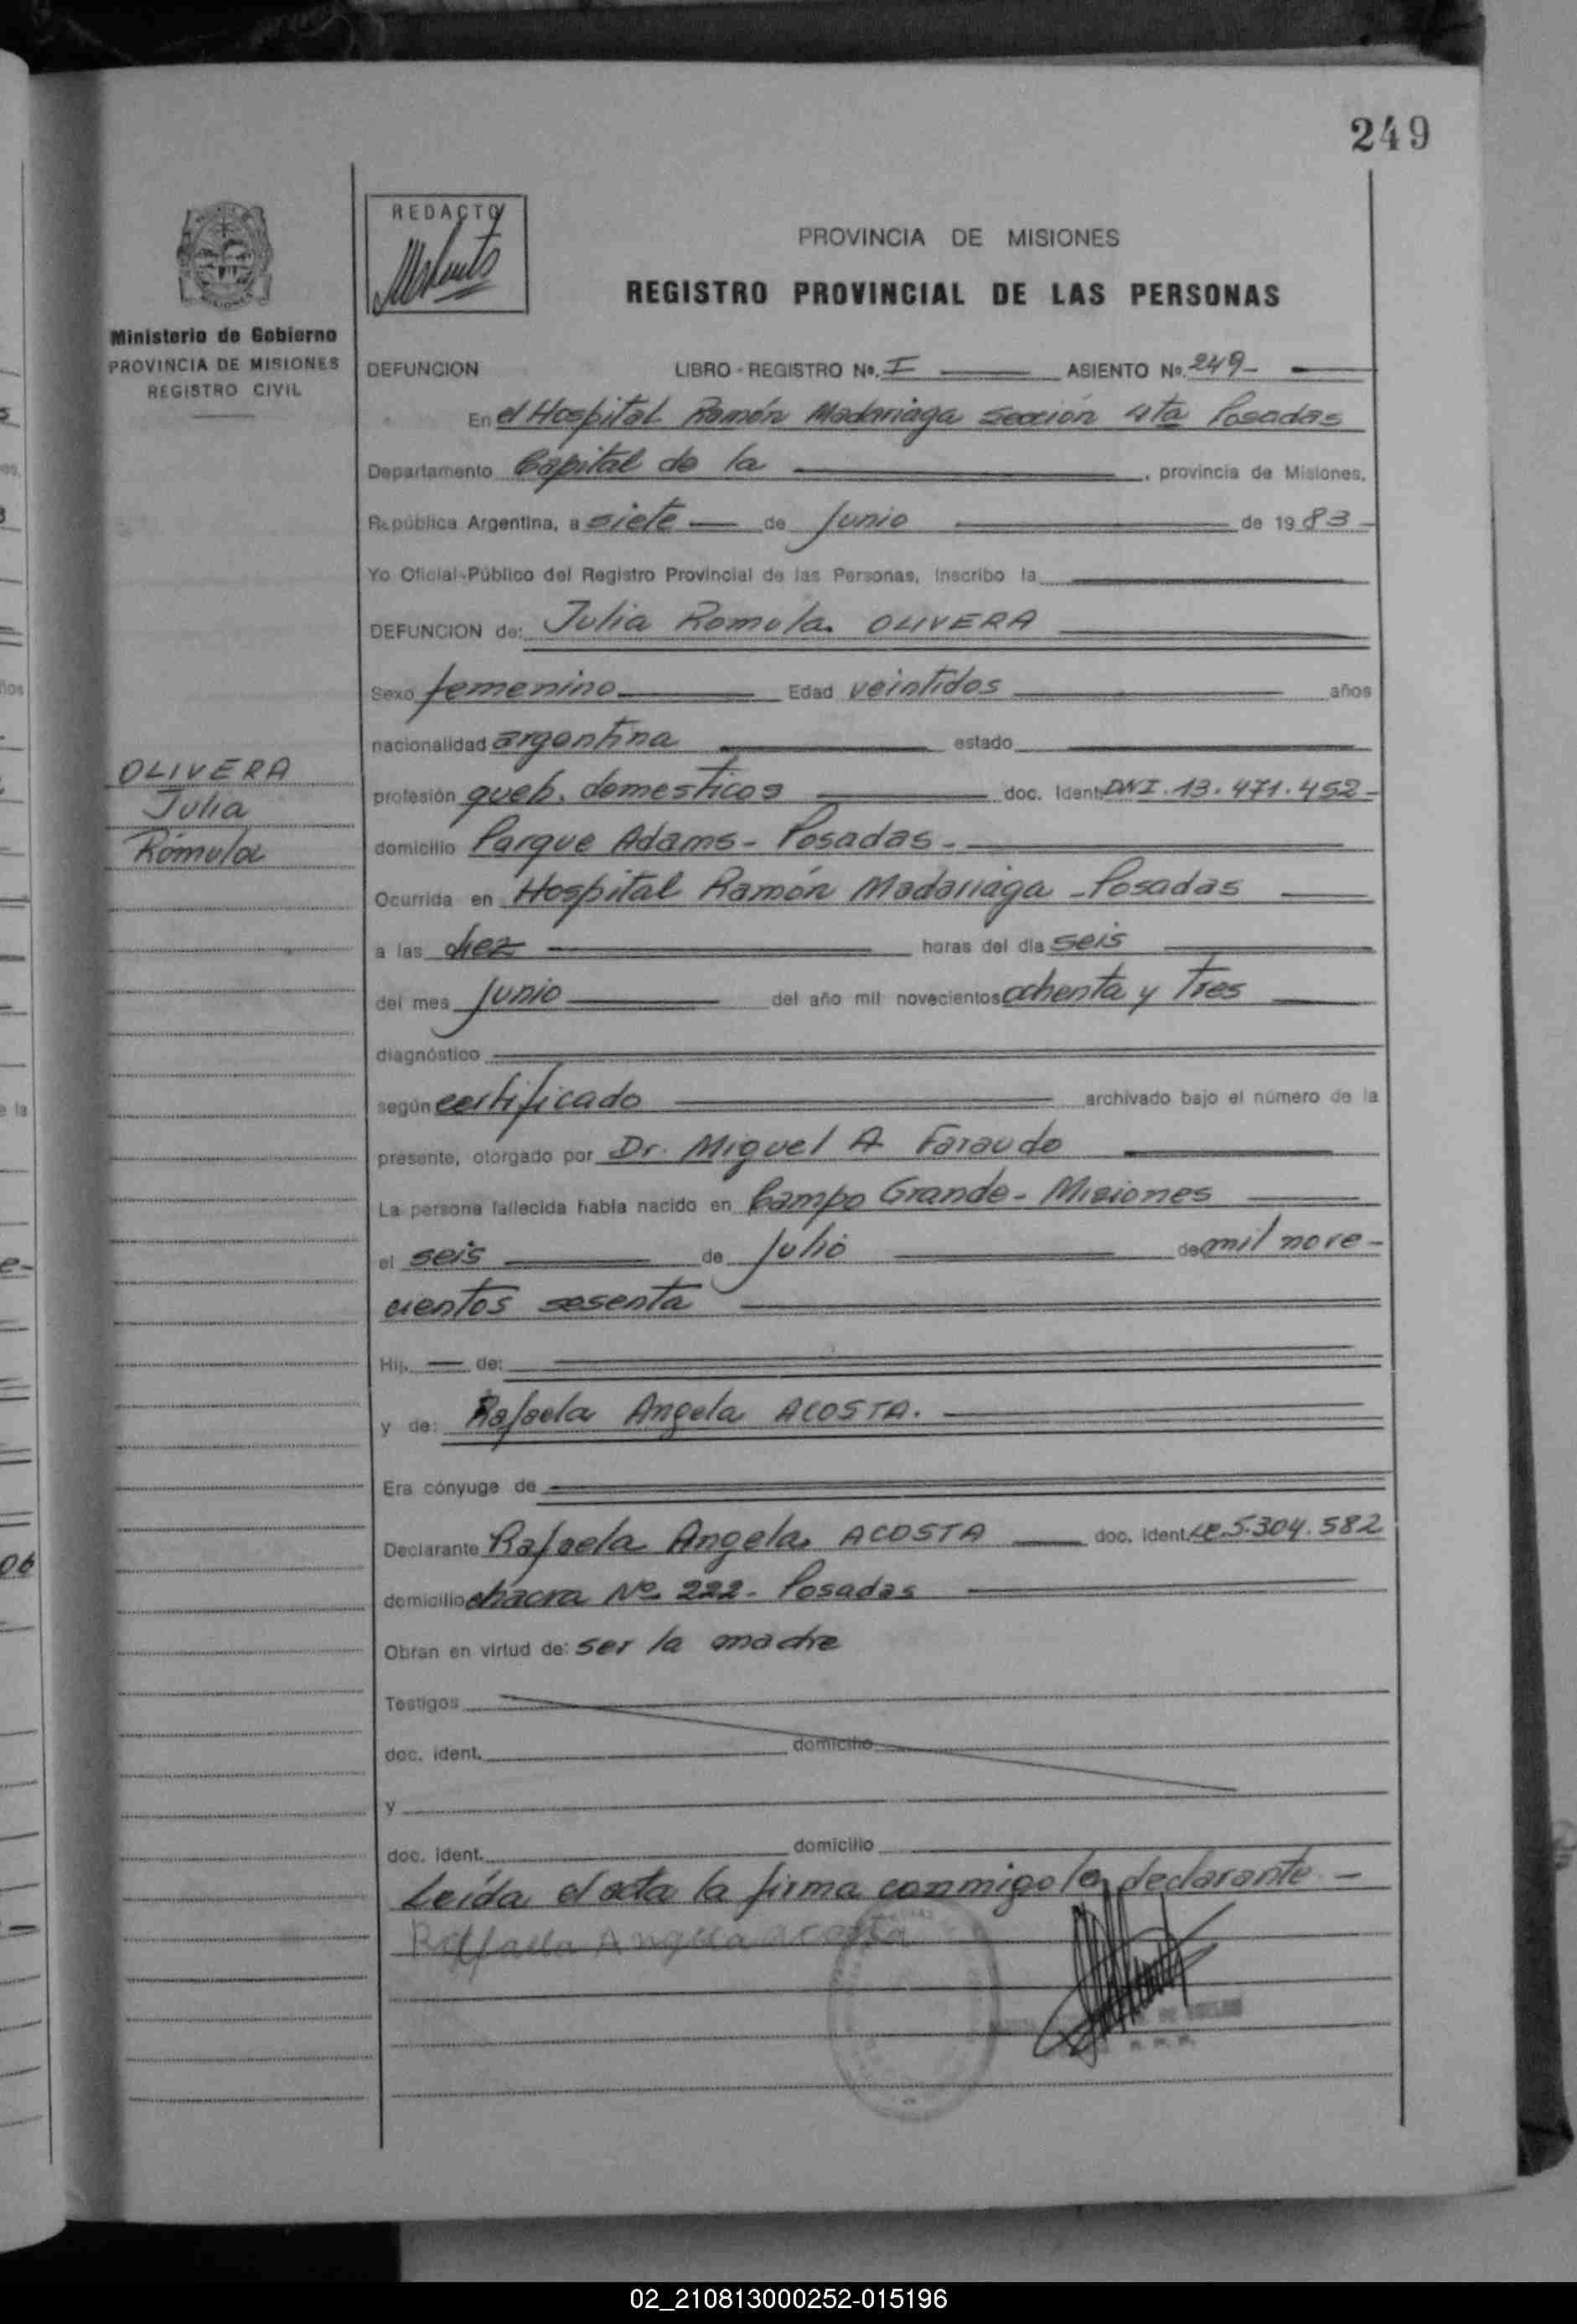 249
REDACTO
PROVINCIA DE MISIONES
REGISTRO PROVINCIAL DE LAS PERSONAS
Ministerio de Gobierno
PROVINCIA DE MISIONES
REGISTRO CIVIL
DEFUNCION LIBRO - REGISTRO Nº. I ASIENTO Nº. 249-
En el Hospital Ramón Madariaga Sección 4ta Posadas
Departamento Capital de la , provincia de Misiones,
República Argentina, a siete de Junio de 1983
Yo Oficial Público del Registro Provincial de las Personas, inscribo la
DEFUNCION de: Julia Romula OLIVERA
Sexo femenino Edad veintidos años
nacionalidad argentina estado
OLIVERA
Julia
Rómula
profesión queh. domesticos doc. Ident. DNI. 13.471.452-
domicilio Parque Adams - Posadas -
Ocurrida en Hospital Ramón Madariaga - Posadas
a las diez horas del día seis
del mes Junio del año mil novecientos ochenta y Tres
diagnóstico
según certificado archivado bajo el número de la
presente, otorgado por Dr. Miguel A Faraudo
La persona fallecida había nacido en Campo Grande - Misiones
el seis de Julio de mil nove-
cientos sesenta
Hij. de:
y de: Rafaela Angela ACOSTA.
Era cónyuge de
Declarante Rafaela Angela ACOSTA doc. Ident. 5.304.582
domicilio chacra Nº 222 - Posadas
Obran en virtud de: ser la madre
Testigos
doc. ident. domicilio
y
doc. ident. domicilio
Leída el acta la firma conmigo la declarante -
Raffaela Angela acosta
02_210813000252-015196